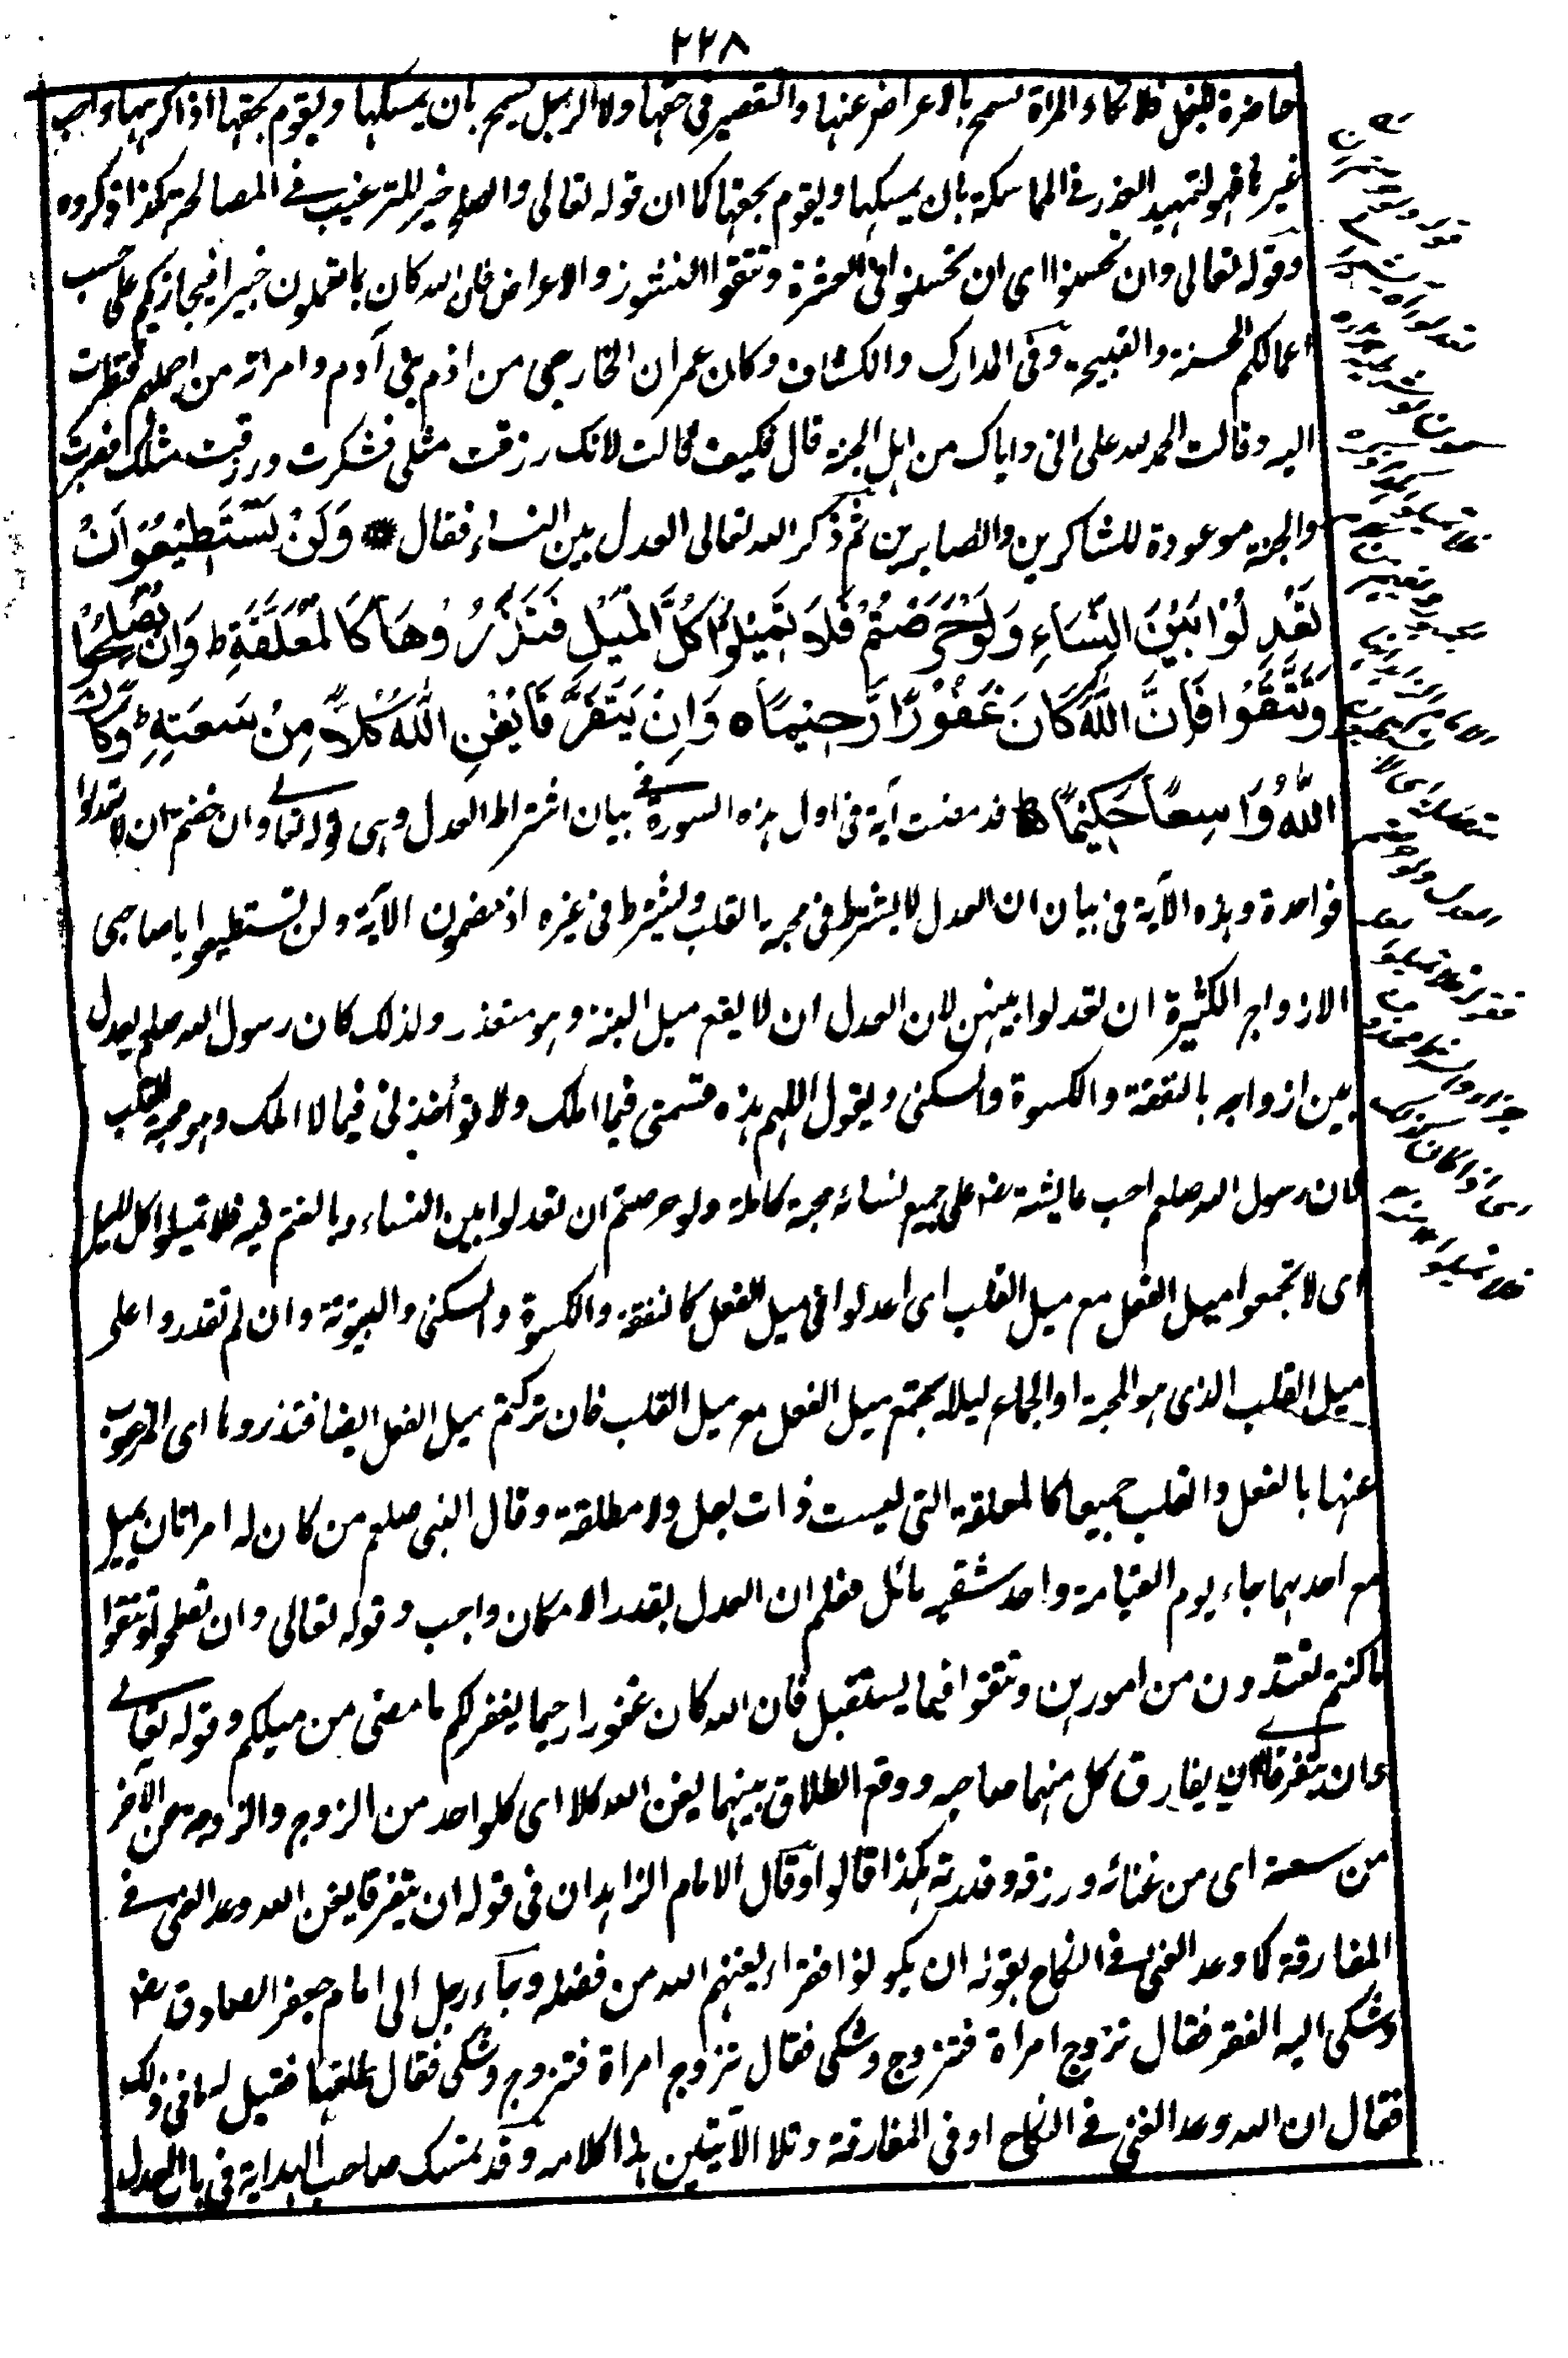 ٢٢٨
حاضرة للبخل فلا تكاد المراة تسمح بالاعراض عنها والتقصير فى حقها ولا الرجل يسمح بان يمسكها ويقوم بحقها اذا كرهها واحب
غيرها فهو لتمهيد العذر فى المماسكة بان يمسكها ويقوم بحقها كما ان قوله تعالى والصلح خير للترغيب فى المصالحة هكذا ذكروه
وقوله تعالى وان تحسنوا اى ان تحسنوا فى العشرة وتتقوا النشوز والاعراض فان الله كان بما تعملون خبيرا فيجازيكم على حسب
اعمالكم الحسنة والقبيحة وفى المدارك والكشاف وكان عمران الخارجى من اذم بنى آدم وامراته من اجملهم فنظرت
اليه وقالت الحمد لله على انى واياك من اهل الجنة قال فكيف قالت لانك رزقت مثلى فشكرت ورزقت مثلك فصبرت
والجنة موعودة للشاكرين والصابرين ثم ذكر الله تعالى العدل بين النساء فقال وَلَنْ تَسْتَطِيْعُوْا اَنْ
تَعْدِلُوْا بَيْنَ النِّسَاءِ وَلَوْ حَرَصْتُمْ فَلَا تَمِيْلُوْا كُلَّ الْمَيْلِ فَتَذَرُوْهَا كَالْمُعَلَّقَةِ ط وَاِنْ تُصْلِحُوْا
وَتَتَّقُوْا فَاِنَّ اللّٰهَ كَانَ غَفُوْرًا رَّحِيْمًا ٥ وَاِنْ يَتَفَرَّقَا يُغْنِ اللّٰهُ كُلًّا مِنْ سَعَتِهِ ط وَكَانَ
اللّٰهُ وَاسِعًا حَكِيْمًا قد مضت آية فى اول هذه السورة فى بيان اشتراط العدل وهى قوله تعالى وان خفتم ان لا تعدلوا
فواحدة وهذه الآية فى بيان ان العدل لا يشترط فى محبة القلب ويشترط فى غيره اذ مضمون الآية ولن تستطيعوا يا صاحبى
الازواج الكثيرة ان تعدلوا بينهن لان العدل ان لا يقع ميل البتة وهو متعذر ولذلك كان رسول الله صلعم يعدل
بين ازواجه بالنفقة والكسوة والسكنى ويقول اللهم هذه قسمتى فيما املك ولا تؤاخذنى فيما لا املك وهو محبة القلب
فان رسول الله صلعم احب عايشة رض على جميع نسائه محبة كاملة ولو حرصتم ان تعدلوا بين النساء وبالغتم فيه فلا تميلوا كل الميل
اى لا تجمعوا ميل الفعل مع ميل القلب اى اعدلوا فى ميل الفعل كالنفقة والكسوة والسكنى والبيتوتة وان لم تقدروا على
ميل القلب الذى هو المحبة او الجماع ليلا يجتمع ميل الفعل مع ميل القلب فان تركتم ميل الفعل ايضا فتذروها اى المرغوب
عنها بالفعل والقلب جميعا كالمعلقة التى ليست ذات بعل ولا مطلقة وقال النبى صلعم من كان له امراتان يميل
مع احدهما جاء يوم القيامة واحد شقيه مائل فعلم ان العدل بقدر الامكان واجب وقوله تعالى وان تصلحوا وتتقوا
ما كنتم تعتدون من امورهن وتتقوا فيما يستقبل فان الله كان غفورا رحيما يغفر لكم ما مضى من ميلكم وقوله تعالى
وان يتفرقا اى يفارق كل منهما صاحبه ووقع الطلاق بينهما يغن الله كلا اى كلواحد من الزوج والزوجة عن الآخر
من سعته اى من غنائه ورزقه وقدرته هكذا قالوا وقال الامام الزاهد ان فى قوله ان يتفرقا يغن الله وعد الغنى فى
المفارقة كما وعد الغنى فى النكاح بقوله ان يكونوا فقراء يغنهم الله من فضله وجاء رجل الى امام جعفر الصادق رض
وشكى اليه الفقر فقال تزوج امراة فتزوج وشكى فقال تزوج امراة فتزوج وشكى فقال طلقها فقيل له ما فى ذلك
فقال ان الله وعد الغنى فى النكاح او فى المفارقة وتلا الآيتين هذا كلامه وقد تمسك صاحب الهداية فى باب العدل